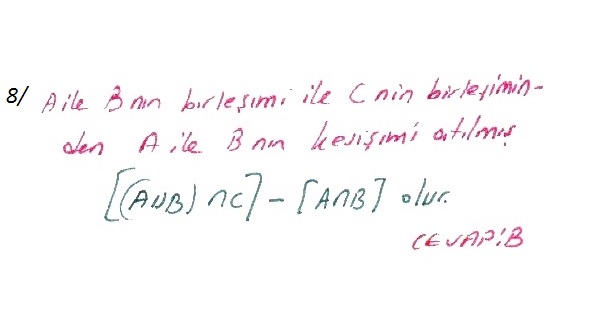 8/ A ile B nın birleşimi ile C nin birleşimin-
den A ile B nın kesişimi atılmış
[(A∪B) ∩C] - [A∩B] olur.
CEVAP:B